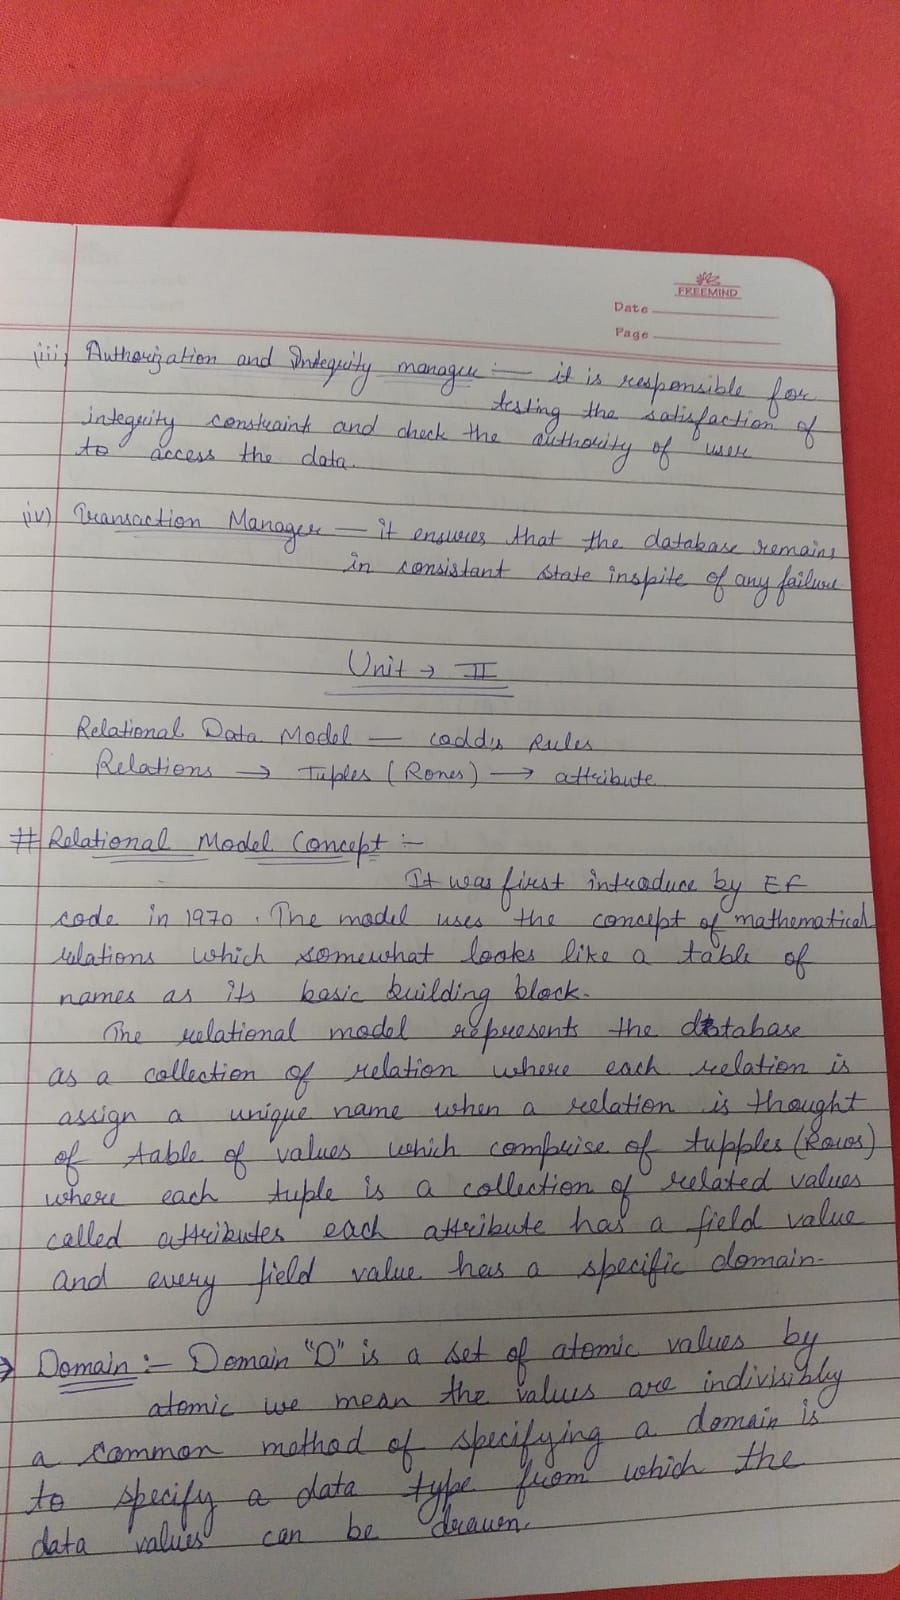 FREEMIND
Date
Page
(iii) Authorization and Integrity manager :— it is responsible for
testing the satisfaction of
integrity constraint and check the authority of user
to access the data.
(iv) Transaction Manager — it ensures that the database remains
in consistant state inspite of any failure
Unit → II
Relational Data Model — coddys Rules
Relations → Tuples (Rones) → attribute
# Relational Model Concept :-
It was first introduce by EF
code in 1970. The model uses the concept of mathematical
relations which somewhat looks like a table of
names as its basic building block.
The relational model represents the database
as a collection of relation where each relation is
assign a unique name when a relation is thought
of table of values which comprise of tupples (Rows)
where each tuple is a collection of related values
called attributes each attribute has a field value
and every field value has a specific domain.
→ Domain :- Domain "D" is a set of atomic values by
atomic we mean the values are indivisibly
a common mothod of specifying a domain is
to specify a data type from which the
data values can be drawn.